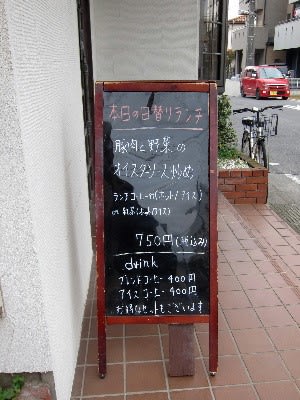 本日の日替りランチ
豚肉と野菜の
オイスターソース炒め
ランチコーヒー付(ホット/アイス)
or 紅茶
750円(税込み)
drink
ブレンドコーヒー 400円
アイスコーヒー 400円
お得なセットもございます